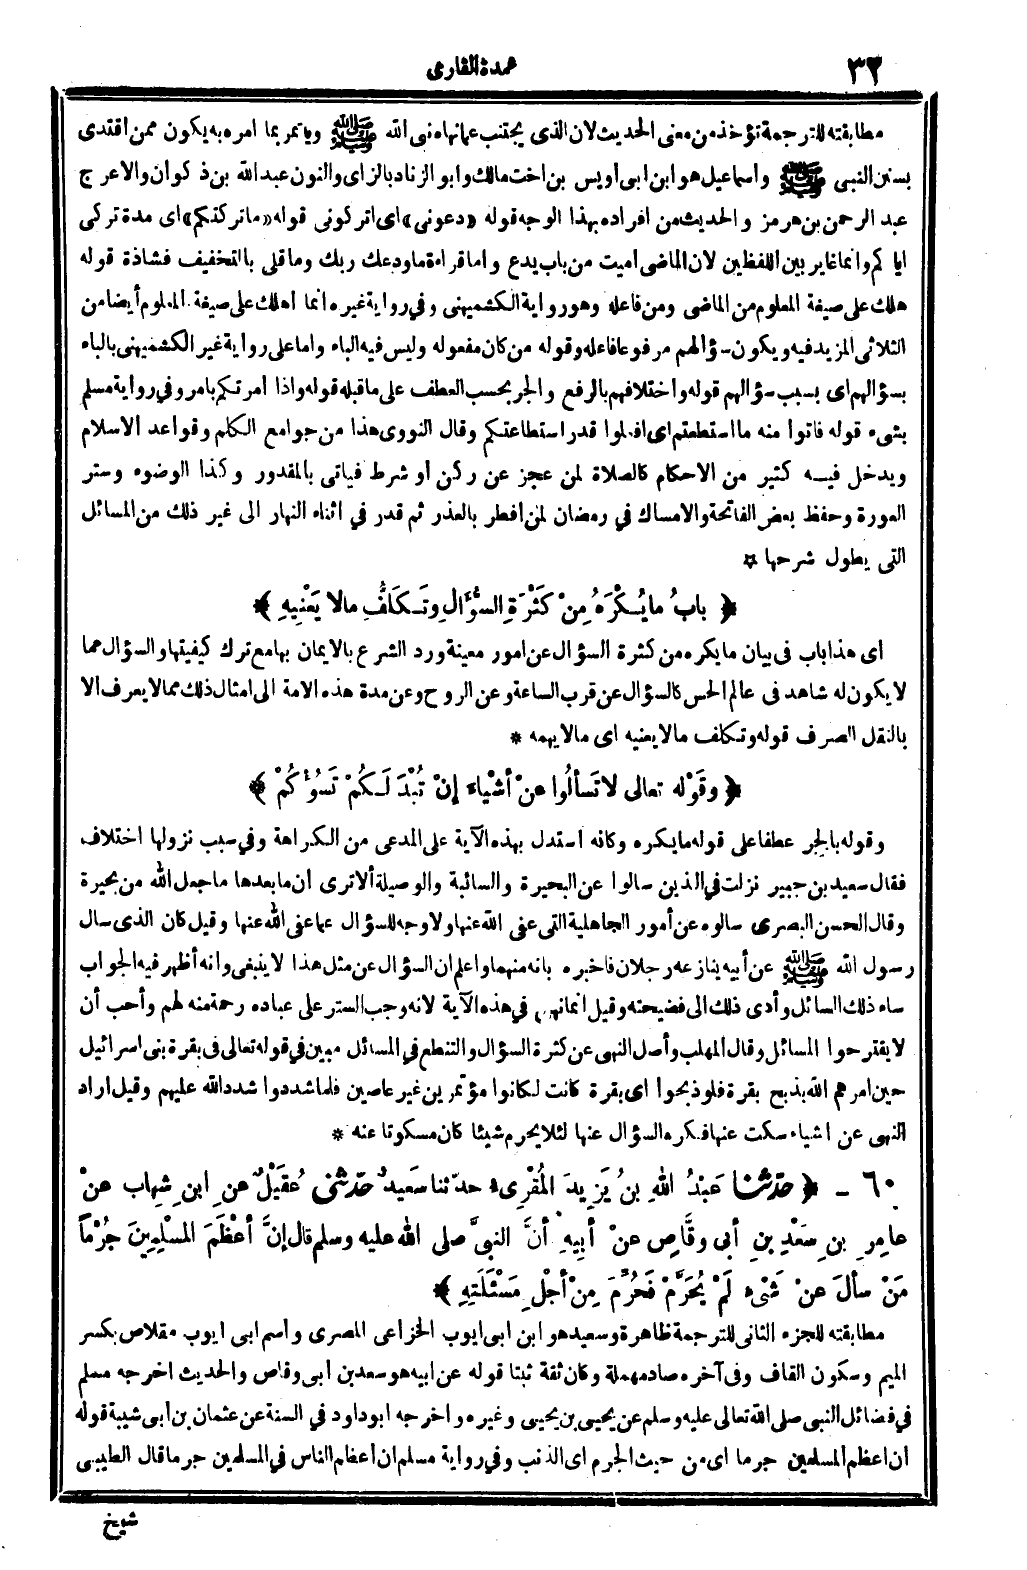 ٣٢
عمدة القارى
مطابقته للترجمة تؤخذ من معنى الحديث لان الذى يجتنب عما نهاه نبى الله ﷺ وياتمر بما امره به يكون ممن اقتدى
بسنن النبى ﷺ واسماعيل هو ابن ابى أويس بن اخت مالك وابو الزناد بالزاى والنون عبد الله بن ذكوان والاعرج
عبد الرحمن بن هرمز والحديث من افراده بهذا الوجه قوله «دعونى» اى اتركونى قوله «ماتركتكم» اى مدة تركى
اياكم وانما غاير بين اللفظين لان الماضى اميت من باب يدع واما قراءة ماودعك ربك وما قلى بالتخفيف فشاذة قوله
هلك على صيغة المعلوم من الماضى ومن فاعله وهو رواية الكشميهنى وفي رواية غيره انما اهلك على صيغة المعلوم أيضا من
الثلاثى المزيد فيه ويكون سؤالهم مرفوعا فاعله وقوله من كان مفعوله وليس فيه الباء واما على رواية غير الكشميهنى بالباء
بسؤالهم اى بسبب سؤالهم قوله واختلافهم بالرفع والجر بحسب العطف على ماقبله قوله واذا امرتكم بامر وفي رواية مسلم
بشىء قوله فاتوا منه مااستطعتم اى افعلوا قدر استطاعتكم وقال النووى هذا من جوامع الكلم وقواعد الاسلام
ويدخل فيه كثير من الاحكام كالصلاة لمن عجز عن ركن أو شرط فياتى بالمقدور وكذا الوضوء وستر
العورة وحفظ بعض الفاتحة والامساك في رمضان لمن افطر بالعذر ثم قدر في اثناء النهار الى غير ذلك من المسائل
التى يطول شرحها ✡
﴿ بابُ ما يُكْرَهُ مِنْ كَثْرَةِ السُّؤَالِ وتَكَلُّفِ مالا يَعْنِيهِ ﴾
اى هذا باب فى بيان مايكره من كثرة السؤال عن امور معينة ورد الشرع بالايمان بها مع ترك كيفيتها والسؤال عما
لا يكون له شاهد فى عالم الحس كالسؤال عن قرب الساعة وعن الروح وعن مدة هذه الامة الى امثال ذلك مما لا يعرف الا
بالنقل الصرف قوله وتكلف مالا يعنيه اى مالا يهمه *
﴿ وقَوْله تعالى لا تَسألُوا عنْ أشْياءَ إنْ تُبْدَ لَكُمْ تَسُؤْكُمْ ﴾
وقوله بالجر عطفا على قوله مايكره وكانه استدل بهذه الآية على المدعى من الكراهة وفي سبب نزولها اختلاف
فقال سعيد بن جبير نزلت في الذين سالوا عن البحيرة والسائبة والوصيلة ألاترى ان مابعدها ماجعل الله من بحيرة
وقال الحسن البصرى سالوه عن أمور الجاهلية التى عفى الله عنها ولا وجه للسؤال عما عفى الله عنها وقيل كان الذى سال
رسول الله ﷺ عن أبيه ينازعه رجلان فاخبره بانه منهما واعلم ان السؤال عن مثل هذا لا ينبغى وانه أظهر فيه الجواب
ساء ذلك السائل وأدى ذلك الى فضيحته وقيل انما نهى في هذه الآية لانه وجب الستر على عباده رحمة منه لهم وأحب أن
لا يقترحوا المسائل وقال المهلب وأصل النهى عن كثرة السؤال والتنطع في المسائل مبين في قوله تعالى فى بقرة بنى اسرائيل
حين امرهم الله بذبح بقرة فلو ذبحوا اى بقرة كانت لكانوا مؤتمرين غير عاصين فلما شددوا شدد الله عليهم وقيل اراد
النهى عن اشياء سكت عنها فكره السؤال عنها لئلا يحرم شيئا كان مسكوتا عنه *
٦٠ – ﴿ حدّثنا عَبْدُ اللهِ بنُ يَزِيدَ المُقْرِىءُ حدّثنا سَعيدٌ حدّثنى عُقَيْلٌ عن ابنِ شِهاب عنْ
عامِرِ بنِ سَعْدِ بنِ أبى وقَّاصٍ عنْ أبِيهِ أنَّ النبىَّ صلى الله عليه وسلم قال إنَّ أعْظَمَ المسْلِمِينَ جُرْمًا
مَنْ سألَ عنْ شَىْءٍ لَمْ يُحَرَّمْ فَحُرِّمَ مِنْ أجْلِ مَسْئَلَتِهِ ﴾
مطابقته للجزء الثانى للترجمة ظاهرة وسعيد هو ابن ابى ايوب الخزاعى المصرى واسم ابى ايوب مقلاص بكسر
الميم وسكون القاف وفى آخره صاد مهملة وكان ثقة ثبتا قوله عن ابيه هو سعد بن أبى وقاص والحديث اخرجه مسلم
في فضائل النبى صلى الله تعالى عليه وسلم عن يحيى بن يحيى وغيره واخرجه ابو داود في السنة عن عثمان بن أبى شيبة قوله
أن اعظم المسلمين جرما اى من حيث الجرم اى الذنب وفي رواية مسلم ان أعظم الناس في المسلمين جرما قال الطيبى
شيخ